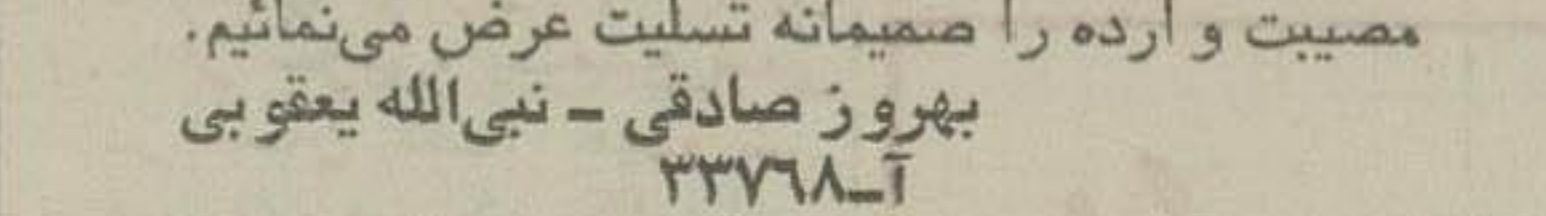 مصیبت وارده را صمیمانه تسلیت عرض می‌نمائیم.
بهروز صادقی ـ نبی‌الله یعقوبی
آـ۳۳۷۶۸